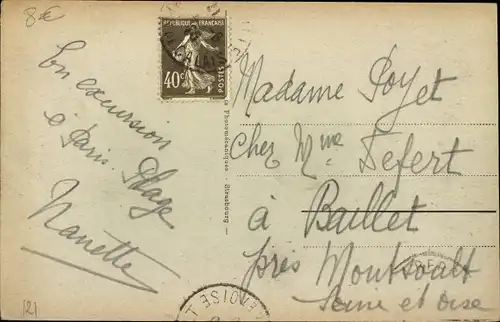 8€
En excursion
à Paris Plage
Nanette
121
RÉPUBLIQUE FRANÇAISE
40c
POSTES
Photomécaniques - Strasbourg
Madame Poyet
chez Mme Defert
à Baillet
près Montsoult
Seine et Oise